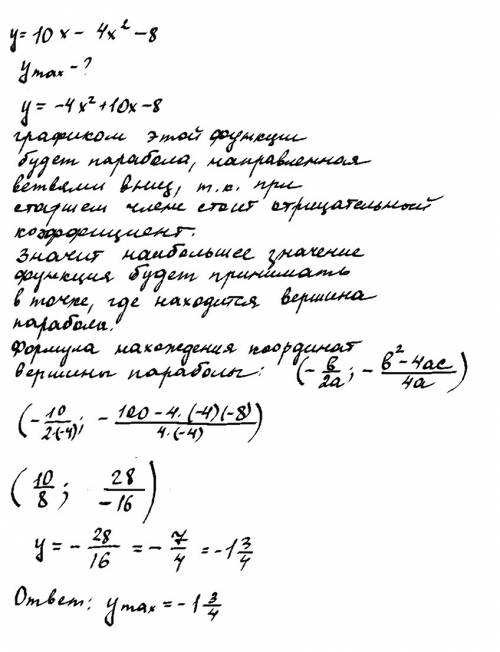 y = 10x - 4x² - 8
y max - ?
y = -4x² + 10x - 8
графиком этой функции
будет парабола, направленная
ветвями вниз, т.к. при
старшем члене стоит отрицательный
коэффициент.
Значит наибольшее значение
функция будет принимать
в точке, где находится вершина
парабола.
Формула нахождения координат
вершины параболы: (-b/2a; -(b² - 4ac)/4a)
(-10/2·(-4); -(100 - 4·(-4)(-8))/4·(-4))
(10/8; 28/-16)
y = -28/16 = -7/4 = -1 3/4
Ответ: y max = -1 3/4